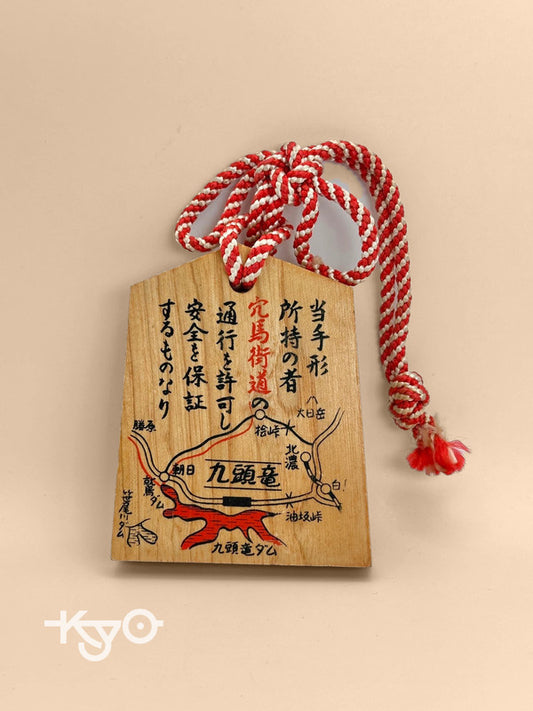 当手形
所持の者
穴馬街道の
通行を許可し
安全を保証
するものなり
大日岳
桧峠
勝原
朝日
九頭竜
北濃
白
鷲ダム
油坂峠
笹尾川ダム
九頭竜ダム
Kyo